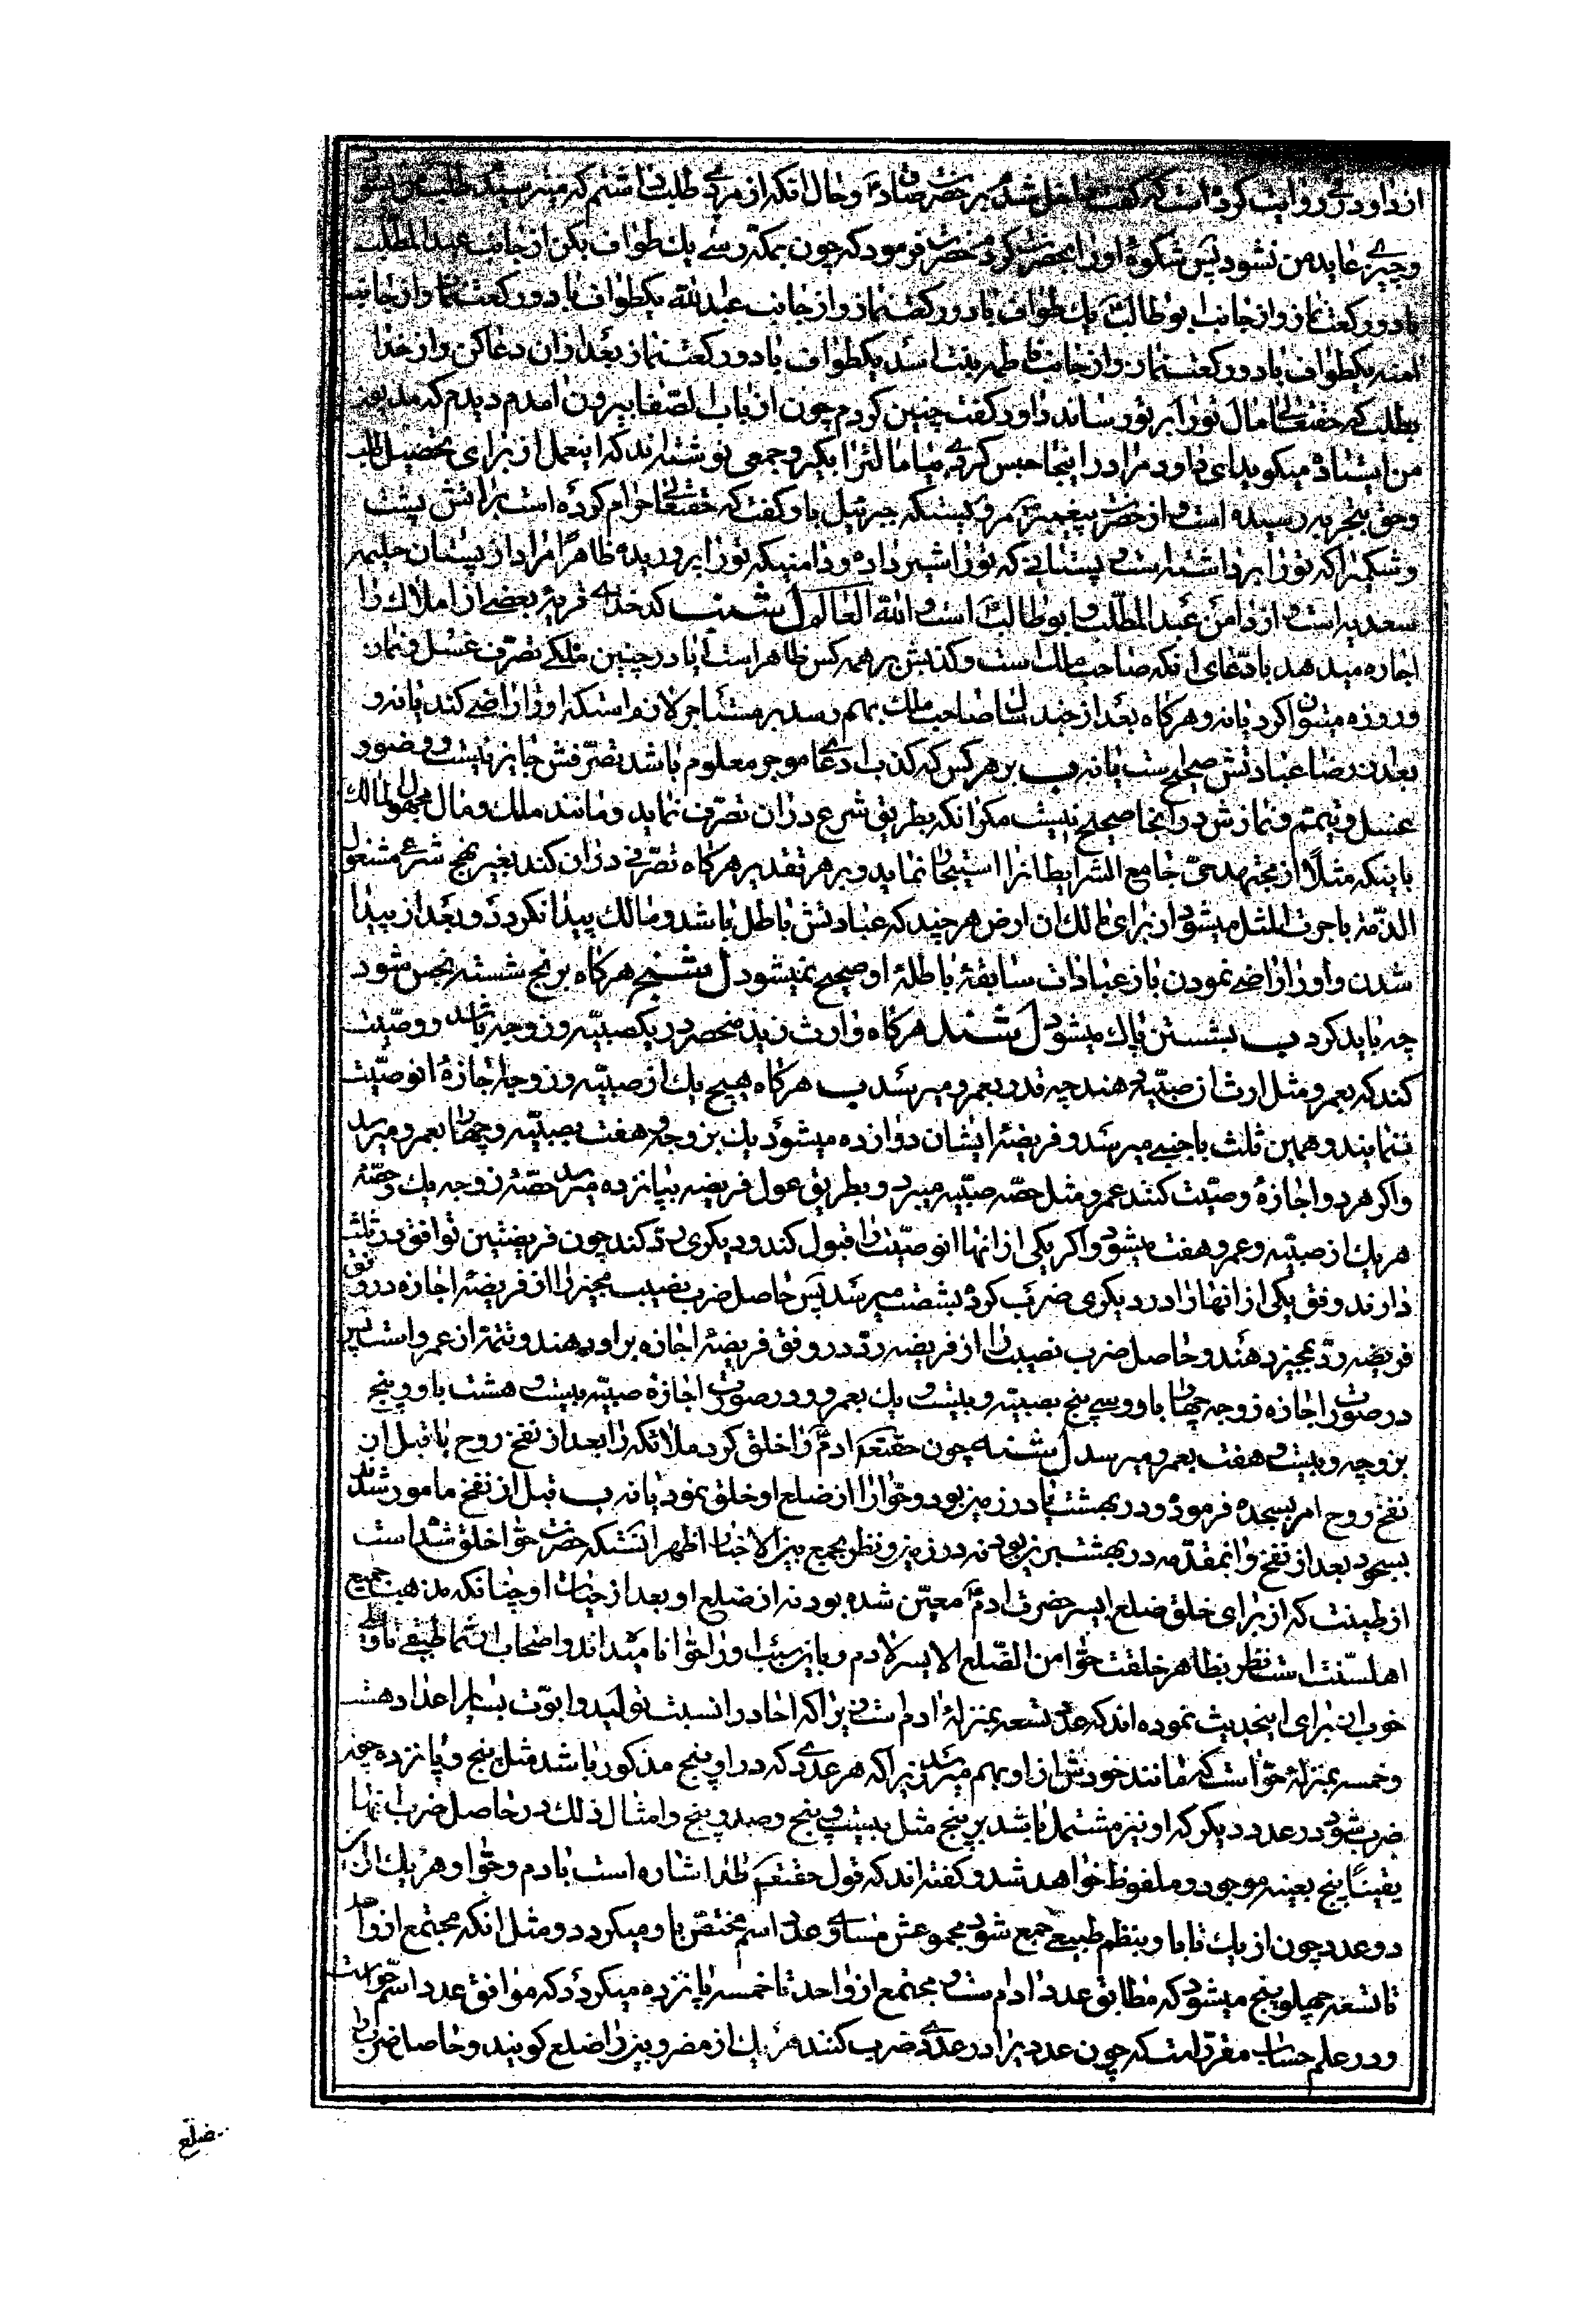 از داود رقی روایت کرده است که گفت داخل شدم بر حضرت صادق ع و حال انکه از مردی طلب داشتم که میترسیدم طلب من بسوزد
و چیزی عاید من نشود پس شکوهٔ او را بحضرت کردم حضرت فرمود که چون بمکه رسی یك طواف بکن از جانب عبد المطلب
با دو رکعت نماز و از جانب ابو طالب یك طواف با دو رکعت نماز و از جانب عبد الله یکطواف با دو رکعت نماز و از جانب
امنه یکطواف با دو رکعت نماز و از جانب فاطمه بنت اسد یکطواف با دو رکعت نماز بعد ازان دعا کن و از خدا
بطلب که حقتعالی مال تو را بر تو رساند داود گفت چنین کردم چون از باب الصفا بیرون امدم دیدم که مدیون
من ایستاده میگوید ای داود مرا در اینجا حبس کردی بیا مالت را بگیر و جمعی نوشته‌اند که اینعمل از برای تحصیل طلب
و حق بتجربه رسیده است و از حضرت پیغمبر ص مرویست که جبرئیل باو گفت که حقتعالی حرام کرده است بر اتش پشت
و شکمیرا که تو را برداشته است و پستانی که تو را شیر داده و دامنیکه تو را پروریده ظاهرا مراد از پستان حلیمه
سعدیه است و از دامن عبد المطلب و ابو طالب است و الله العالم ل شنب کدخدای قریه بعضی از املاك را
اجاره میدهد بادعای انکه صاحب ملك است و کذبش بر همه کس ظاهر است ایا در چنین ملکی تصرف غسل و نماز
و روزه میتوان کرد یا نه و هر گاه بعد از چند سال صاحب ملك بهم رسد بر مستاجر لازم است که او را راضی کند یا نه و
بعد از رضا عبادتش صحیح است یا نه ب بر هر کس که کذب ادعای موجر معلوم باشد تصرفش جایز نیست و وضو و
غسل و تیمم و نمازش در انجا صحیح نیست مگر انکه بطریق شرع دران تصرف نماید و مانند ملك و مال مجهول المالك
باینکه مثلا از مجتهد حی جامع الشرایط انرا استیجار نماید و بر هر تقدیر هر گاه تصرفی دران کند بغیر نهج شرعی مشغول
الذمه باجرت المثل میشود از برای مالك ان ارض هر چند که عبادتش باطل باشد و مالك پیدا نگردد و بعد از پیدا
شدن و او را راضی نمودن باز عبادات سابقهٔ باطلهٔ او صحیح نمیشود ل شنج هر گاه برنج شسته نجس شود
چه باید کرد ب بشستن پاك میشود ل شند هر گاه وارث زید منحصر در یکصبیه و زوجه باشد و وصیت
کند که بعمرو مثل ارث ان صبیه دهند چه قدر بعمرو میرسد ب هر گاه هیچ یك از صبیه و زوجه اجازهٔ انوصیت
ننمایند و همین ثلث باجنبی میرسد و فریضهٔ ایشان دوازده میشود یك بزوجه و هفت بصبیه و چهار بعمرو میرسد
و اگر هر دو اجازهٔ وصیت کنند عمرو مثل حصه صبیه میبرد و بطریق عول فریضه بپانزده میرسد حصهٔ زوجه یك و حصهٔ
هر یك از صبیه و عمرو هفت میشود و اگر یکی از انها انوصیت را قبول کند و دیگری رد کند چون فریضتین توافق در ثلث
دارند وفق یکی از انها را در دیگری ضرب کرده بشصت میرسد پس حاصل ضرب نصیب مجیز را از فریضهٔ اجازه در وفق
فریضه رد بمجیز دهند و حاصل ضرب نصیب راد را از فریضه رد در وفق فریضهٔ اجازه براد دهند و تتمه از عمرو است پس
در صورت اجازه زوجه چهار باو و سی پنج بصبیه و بیست و یك بعمرو و در صورت اجازهٔ صبیه بیست و هشت باو و پنج
بزوجه و بیست و هفت بعمرو میرسد ل شنه چون حقتعم ادم ع را خلق کرد ملائکه را بعد از نفخ روح یا قبل از
نفخ روح امر بسجده فرمود و در بهشت یا در زمین بود و حوا را از ضلع او خلق نمود یا نه ب قبل از نفخ مامور شدند
بسجود بعد از نفخ و اینمقدمه در بهشت برین بود نه در زمین و نظر بجمع بین الاخبار اظهر انستکه حضرت حوا خلق شده است
از طینت که از برای خلق ضلع ایسر حضرت ادم ع معین شده بود نه از ضلع او بعد از حیات او چنانکه مذهب جمیع
اهلسنت است نظر بظاهر خلقت حوا من الضلع الایسر لادم و باین سبب او را حوا نامیده‌اند و اصحاب ارثماطیقی تاویلی
خوب از برای اینحدیث نموده‌اند که عدد تسعه بمنزلهٔ ادم است زیرا که احاد را نسبت تولید و ابوت بسایر اعداد هست
و خمسه بمنزلهٔ حوا است که مانند خودش از او بهم میرسد زیرا که هر عددی که در او پنج مذکور باشد مثل پنج و پانزده چون
ضرب شود در عدد دیگر که او نیز مشتمل باشد بر پنج مثل بیست و پنج و صد و پنج و امثال ذلك در حاصل ضرب انها
یقینا پنج بعینه موجود و ملفوظ خواهد شد و گفته‌اند که قول حقتعم طه اشاره است بادم و حوا و هر یك از این
دو عدد چون از یك تا باو بنظم طبیعی جمع شود مجموعش مساوی عدد اسم مختص باو میگردد و مثل انکه مجتمع از واحد
تا تسعه چهل و پنج میشود که مطابق عدد ادم است و مجتمع از واحد تا خمسه پانزده میگردد که موافق عدد اسم حوا است
و در علم حساب مقرر است که چون عددیرا در عددی ضرب کنند هر یك از مضروبین را ضلع گویند و حاصل ضرب را
ضلع